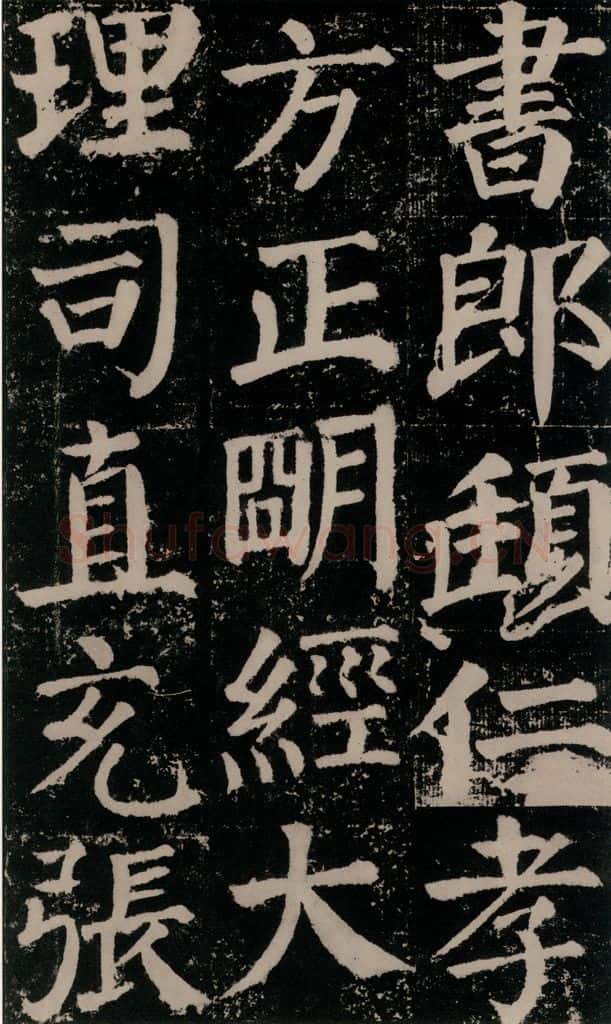 書郎頲仁孝
方正朙經大
理司直充張
Shufawang.CN